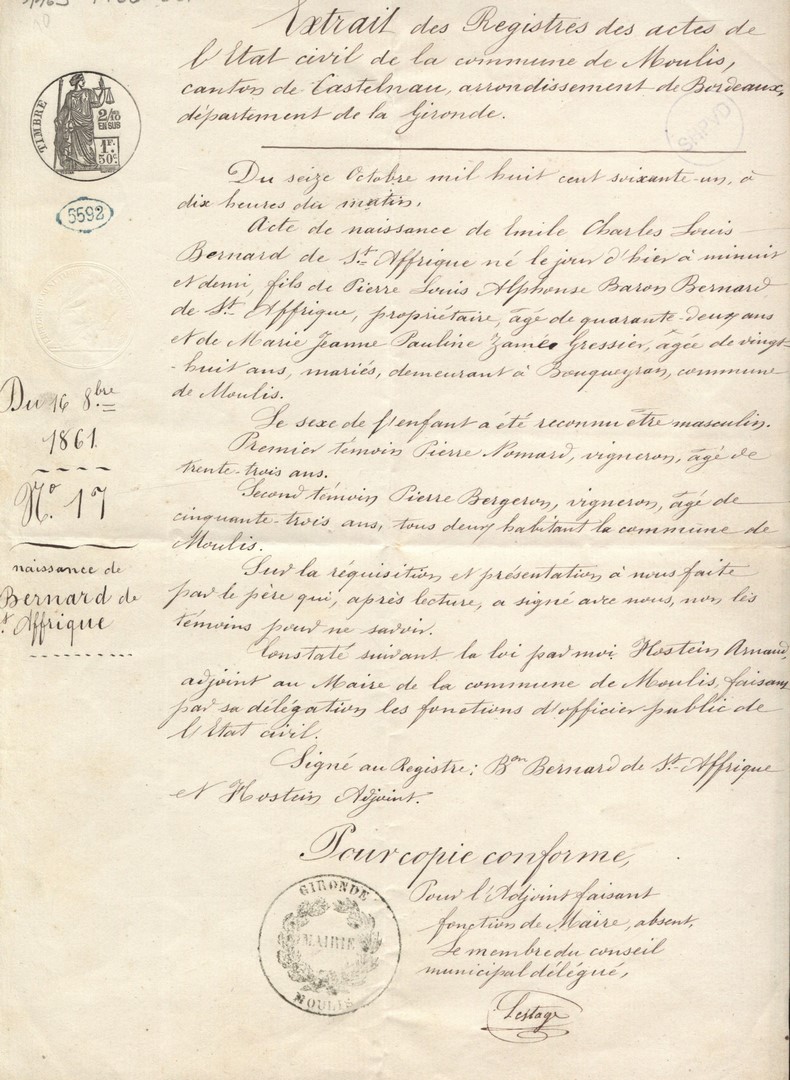 Extrait des Registres des actes de
l'Etat civil de la commune de Moulis,
canton de Castelnau, arrondissement de Bordeaux,
département de la Gironde.
TIMBRE
2/10
EN SUS
1F.
50c.
5592
Du seize Octobre mil huit cent soixante-un, à
dix heures du matin,
Acte de naissance de Emile Charles Louis
Bernard de St Affrique né le jour d'hier à minuit
et demi, fils de Pierre Louis Alphonse Baron Bernard
de St Affrique, propriétaire, âgé de quarante-deux ans
et de Marie Jeanne Pauline Zamée Gressier, âgée de vingt-
-huit ans, mariés, demeurant à Bouqueyran, commune
de Moulis.
Le sexe de l'enfant a été reconnu être masculin.
Premier témoin Pierre Nomard, vigneron, âgé de
trente-trois ans.
Second témoin Pierre Bergeron, vigneron, âgé de
cinquante-trois ans, tous deux habitant la commune de
Moulis.
Sur la réquisition et présentation à nous faite
par le père qui, après lecture, a signé avec nous, non les
témoins pour ne savoir.
Constaté suivant la loi par moi Hostein Arnaud,
adjoint au Maire de la commune de Moulis, faisant
par sa délégation les fonctions d'officier public de
l'Etat civil.
Signé au Registre: Bon Bernard de St Affrique
et Hostein Adjoint.
Du 16 8bre
1861
No. 17
naissance de
Bernard de
St Affrique
Pour copie conforme,
Pour l'Adjoint faisant
fonction de Maire, absent,
Le membre du conseil
municipal délégué,
Lestage
GIRONDE
MAIRIE
MOULIS